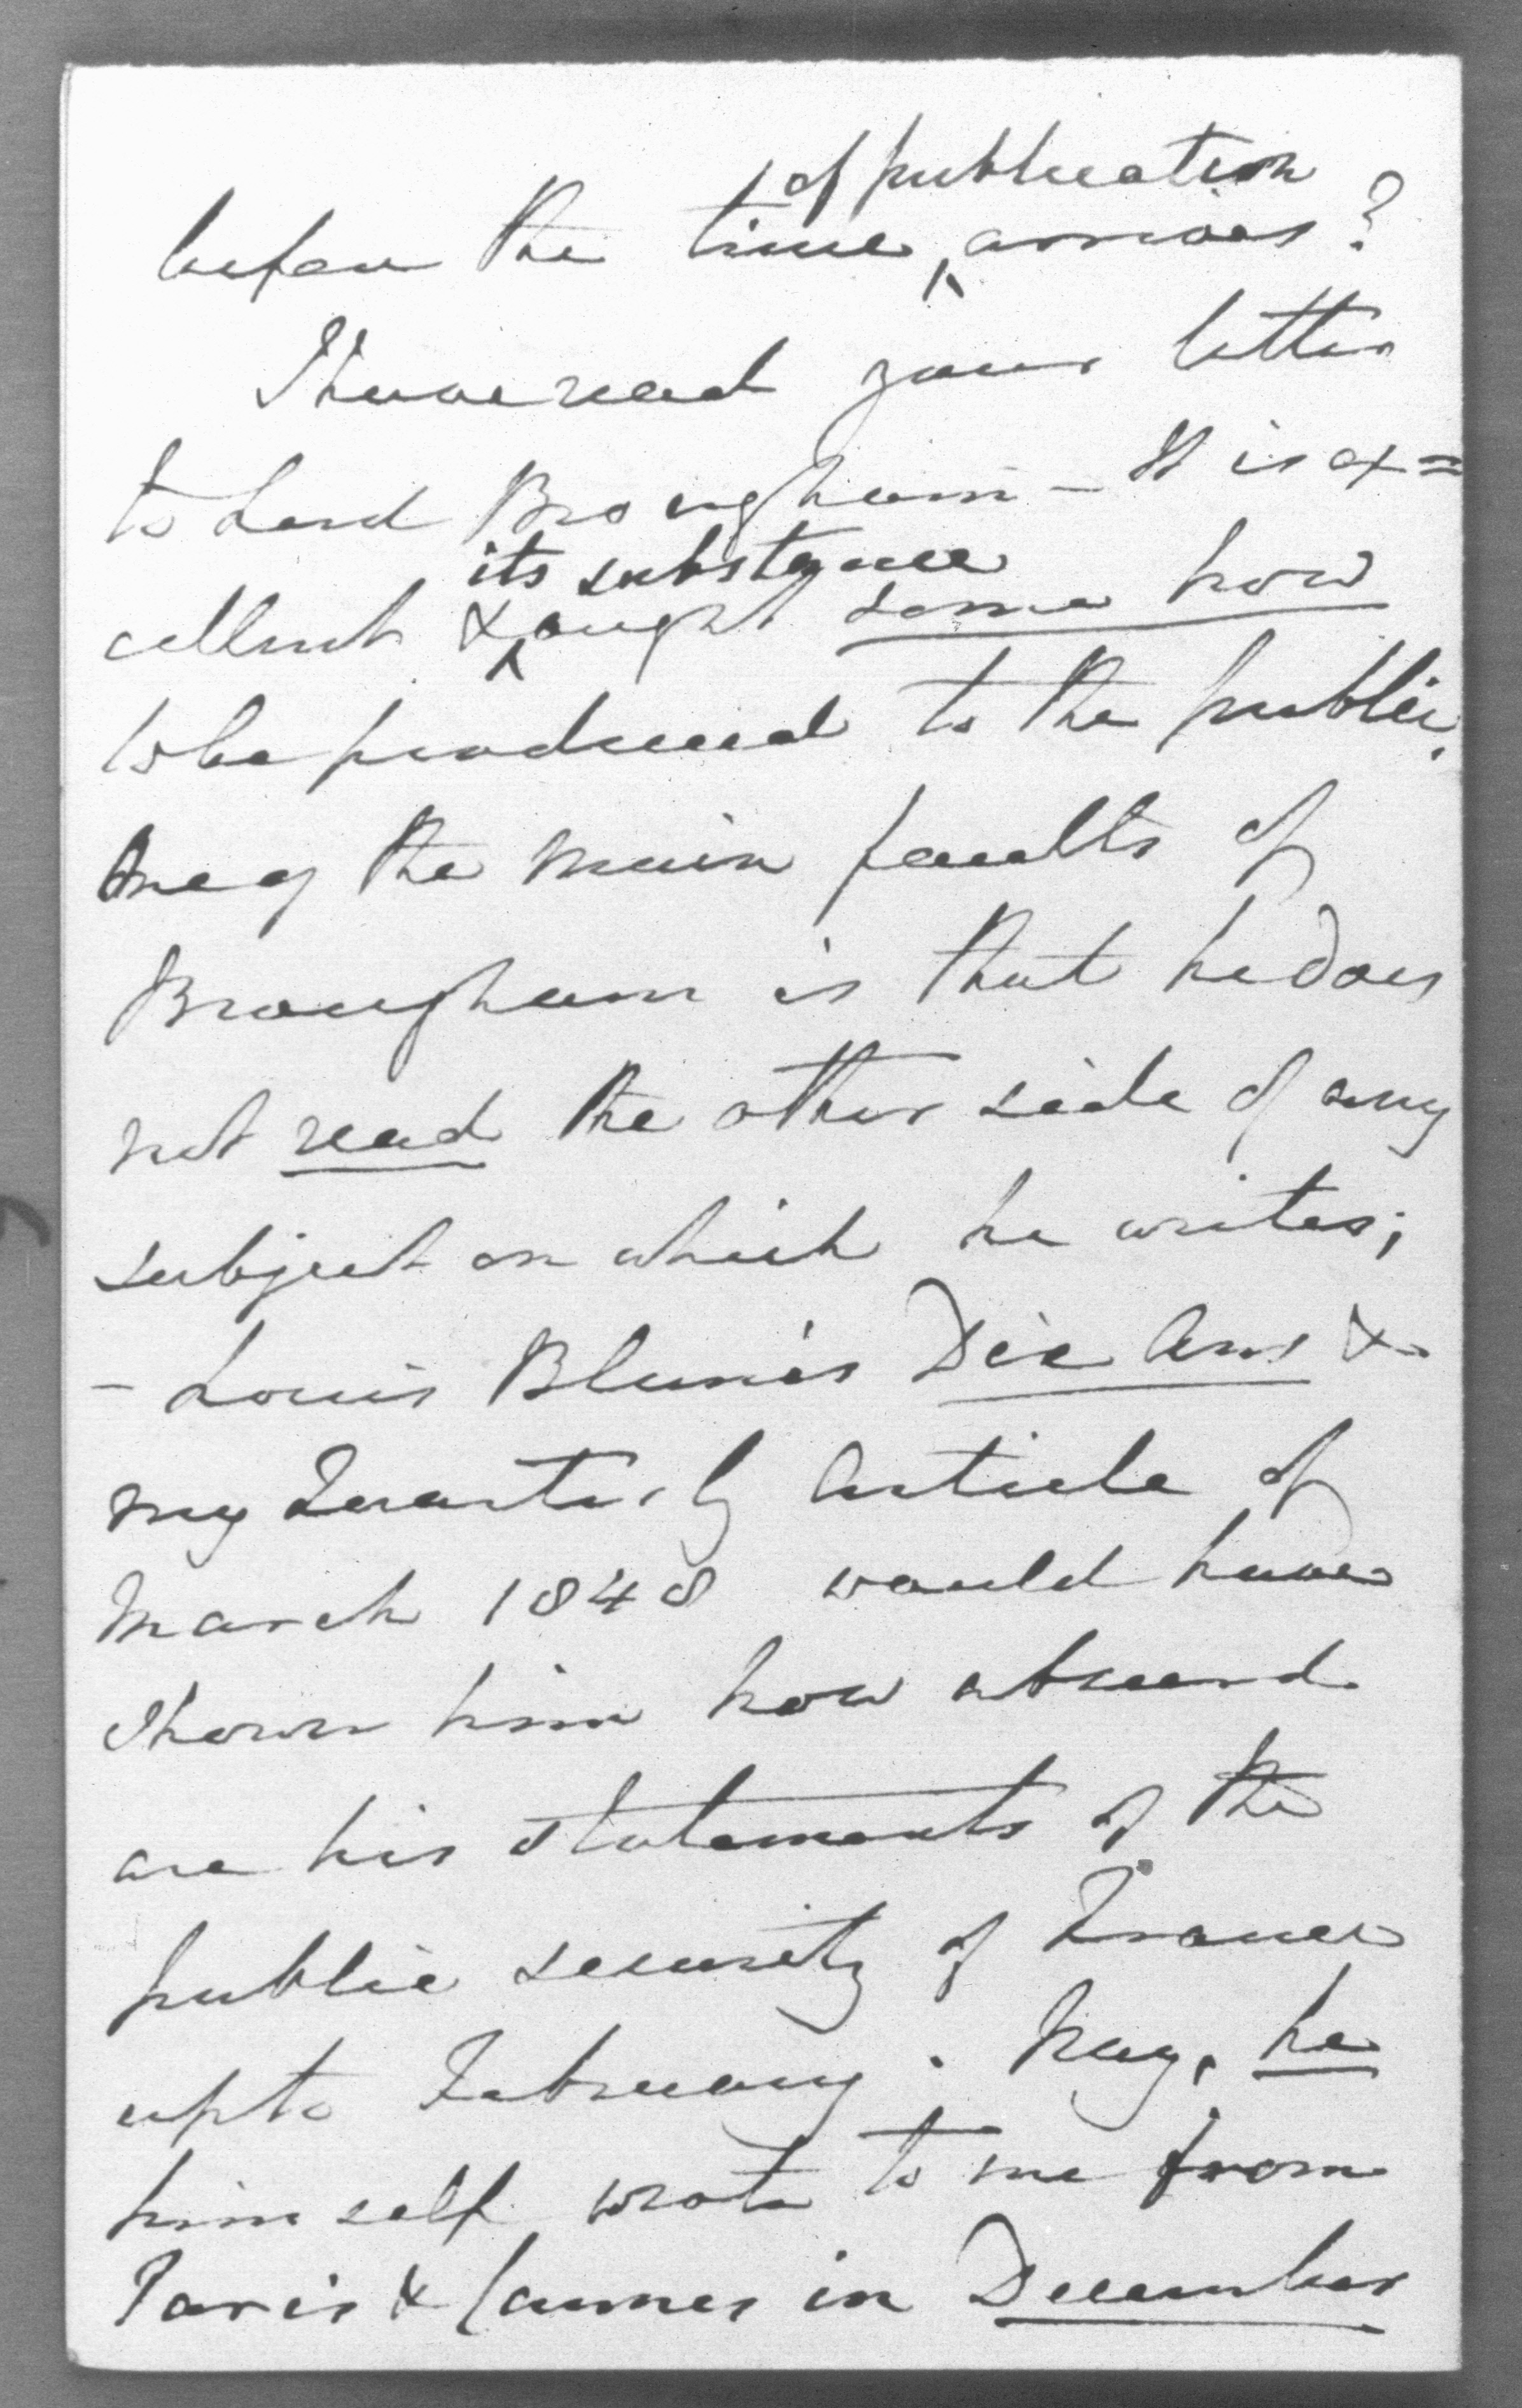 of publication
before the time ^ arrives?
I have read your letter
to Lord Brougham – It is ex=
its substance
cellent & ^ ought some how
to be produced to the public.
One of the main faults of
Brougham is that he does
not read the other side of any
subject on which he writes;
– Louis Blanc's Dix Ans &
my Quarterly Article of
March 1848 would have
shown him how absurd
are his statements of the
public security of France
up to February. Nay, he
himself wrote to me from
Paris & Cannes in December